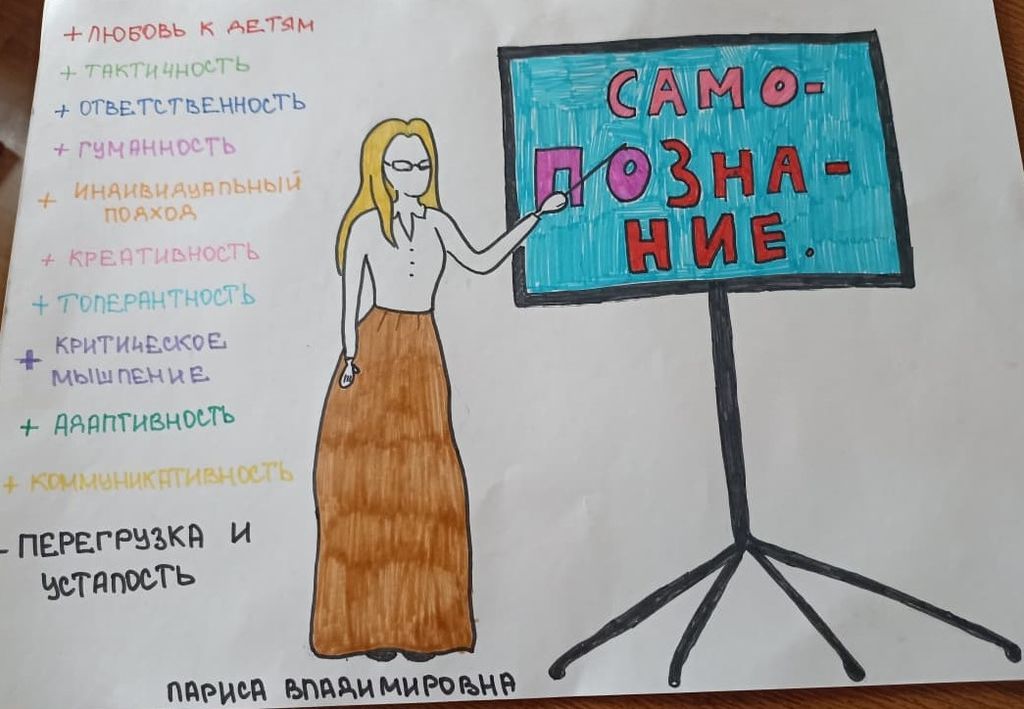 + ЛЮБОВЬ К ДЕТЯМ
+ ТАКТИЧНОСТЬ
+ ОТВЕТСТВЕННОСТЬ
+ ГУМАННОСТЬ
+ ИНДИВИДУАЛЬНЫЙ
ПОДХОД
+ КРЕАТИВНОСТЬ
+ ТОЛЕРАНТНОСТЬ
+ КРИТИЧЕСКОЕ
МЫШЛЕНИЕ
+ АДАПТИВНОСТЬ
+ КОММУНИКАТИВНОСТЬ
- ПЕРЕГРУЗКА И
УСТАЛОСТЬ
САМО-
ПОЗНА-
НИЕ.
ЛАРИСА ВЛАДИМИРОВНА